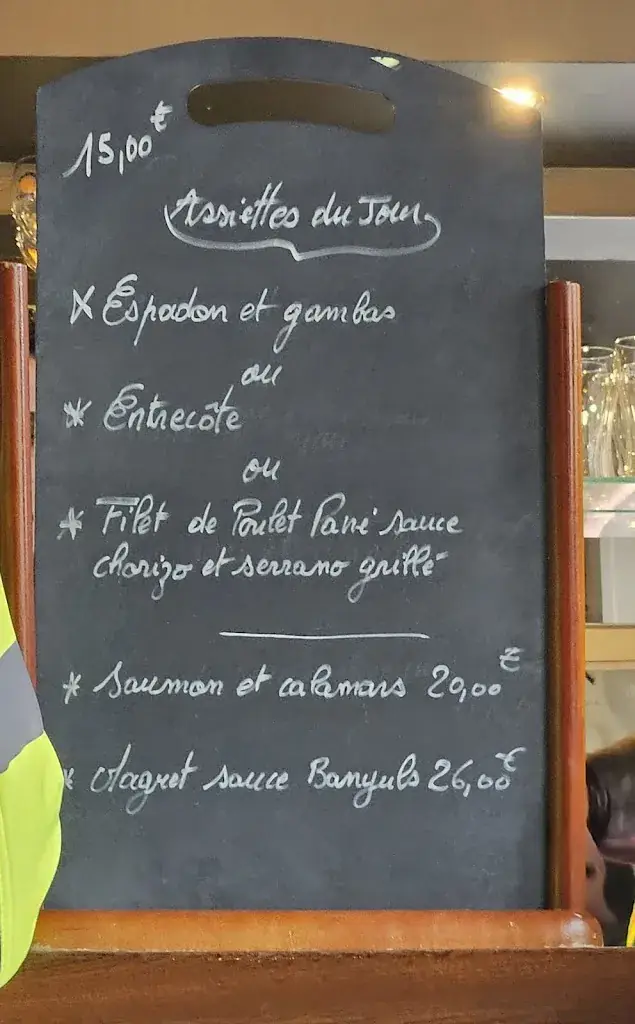 15,00€
Assiettes du Jour
* Espadon et gambas
ou
* Entrecôte
ou
* Filet de Poulet Pané sauce
chorizo et serrano grillé
* Saumon et calamars 20,00€
* Magret sauce Banyuls 26,00€